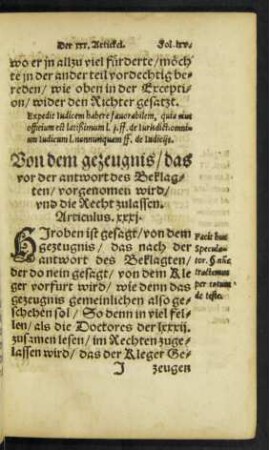 Der xxx. Artickel. Fol. lxv.
wo er in allzu viel fürderte/ möch
te jn der ander teil vordechtig be
reden/ wie oben in der Excepti
on/ wider den Richter gesatzt.
Expedit iudicem habere fauorabilem, quia eius
officium est latissimum l. j. ff. de iurisdict. omni um
iudicum l. nonnunquam ff. de iudicijs.
Von dem gezeugnis/ das
vor der antwort des Beklag-
ten/ vorgenomen wird/
vnd die Recht zulassen.
Articulus. xxxj.
Hiroben ist gesagt/ von dem
Gezeugnis/ das nach der
antwort des Beklagten/
der do nein gesagt/ von dem Kle
ger vorfurt wird/ wie denn das
gezeugnis gemeinlichen also ge-
schehen sol/ So denn in viel fel-
len/ als die Doctores der lxxxij.
zusamen lesen/ im Rechten zuge-
lassen wird/ das der Kleger Ge-
J zeugen
Facit huc
Specula-
tor.
tractamus
per totum
de teste.